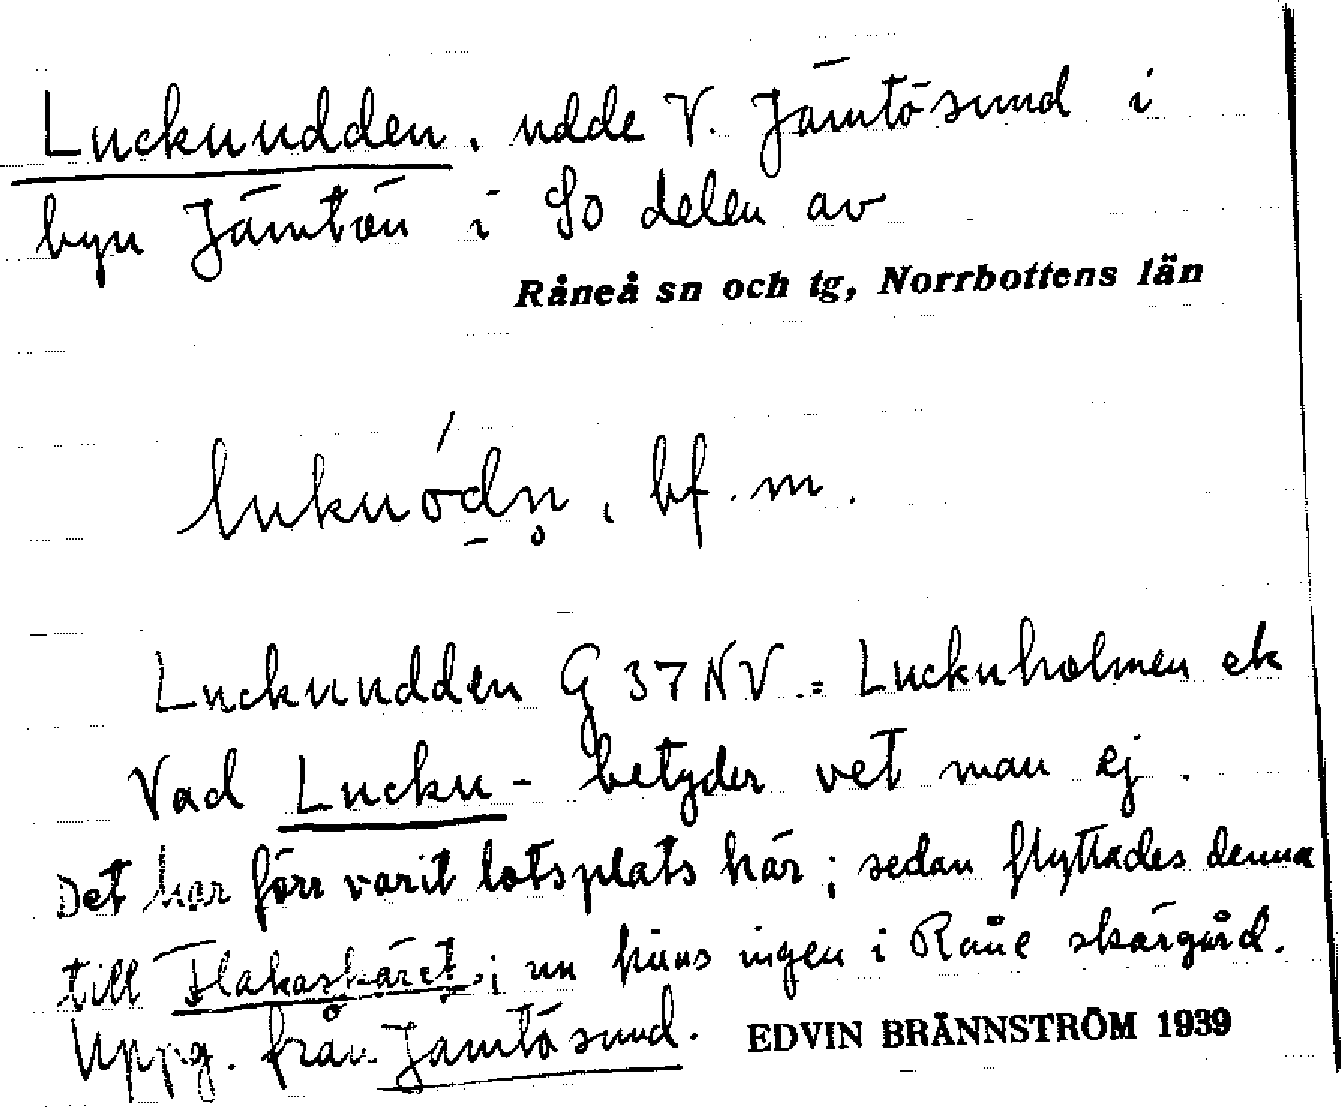 Luckuudden, udde V. Jämtösund i
byn Jämtön i SO delen av
Råneå sn och tg, Norrbottens län
bf. m.
Luckuudden G 37 NV. = Luckuholmen ek
Vad Lucku- betyder vet man ej.
Det har förr varit lotsplats här; sedan flyttades denna
till Flakaskäret; nu finns ingen i Råne skärgård.
Uppg. från Jämtösund. EDVIN BRÄNNSTRÖM 1939